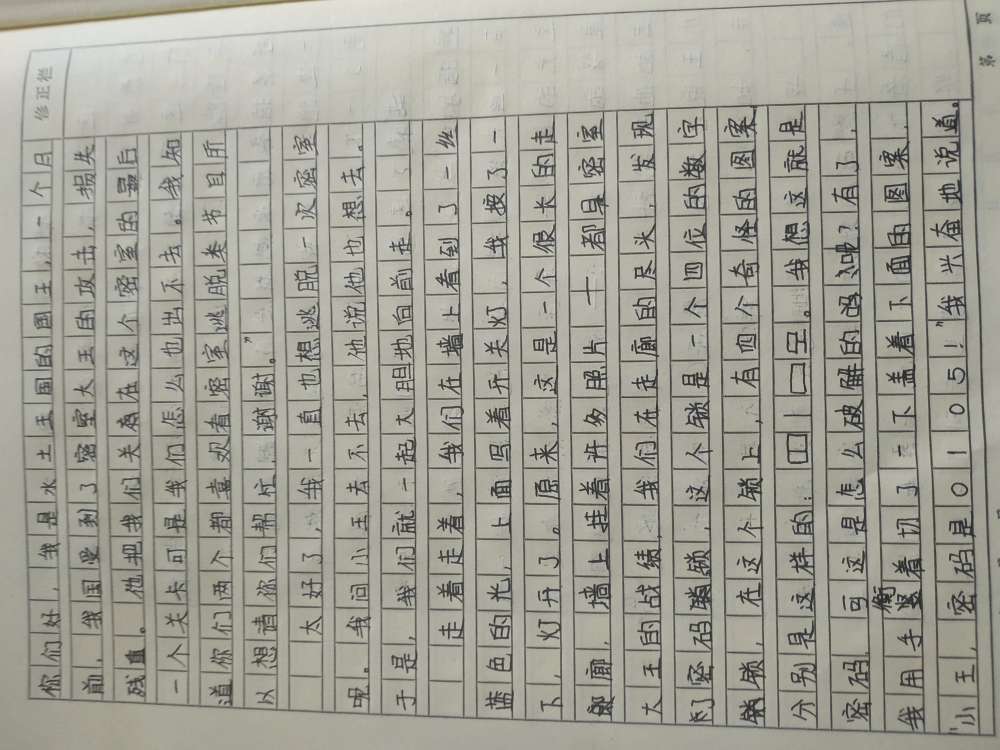 修正栏
你们好，我是水土王国的国王，一个月
前，我国受到了密室大王的攻击，损失
残直。他把我们关在这个密室的最后
一个关卡可是我们怎么也出不去。我知
道你们两个都喜欢看密室逃脱类节目所
以想请你们帮忙，谢谢。”
太好了，我一直也想逃脱一次密室
呢。我问小王去不去，他说他也想去。
于是，我们就一起大胆地向前走。
走着走着，我们在墙上看到了一丝
蓝色的光，上面写着开关灯，我按了一
下，灯开了。原来，这是一个很长的走
廊，墙上挂着许多照片——都是密室
大王的战绩，我们在走廊的尽头，发现
门密码锁，这个锁是一个四位的数字
锁，在这个锁上，有四个奇怪的图案，
分别是这样的：口一口。我想这就是
密码，可这是怎么破解的呢？有了，
我用手横着切了一下盖着下面的图案，
“小王，密码是0105！”我兴奋地说道。
第 页